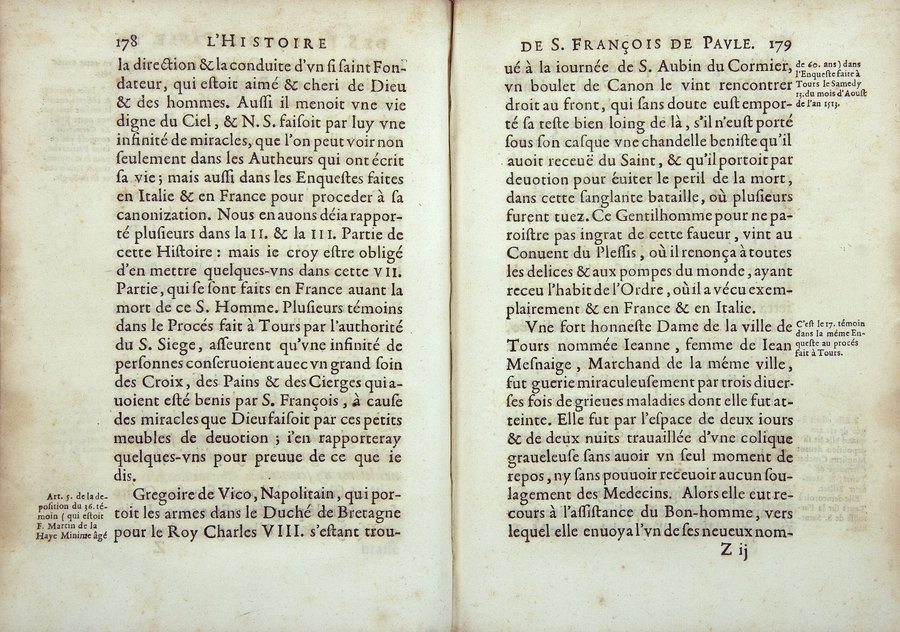 178 L'HISTOIRE
la direction & la conduite d'vn si saint Fon-
dateur, qui estoit aimé & cheri de Dieu
& des hommes. Aussi il menoit vne vie
digne du Ciel, & N. S. faisoit par luy vne
infinité de miracles, que l'on peut voir non
seulement dans les Autheurs qui ont écrit
sa vie; mais aussi dans les Enquestes faites
en Italie & en France pour proceder à sa
canonization. Nous en auons déia rappor-
té plusieurs dans la II. & la III. Partie de
cette Histoire : mais ie croy estre obligé
d'en mettre quelques-vns dans cette VII.
Partie, qui se sont faits en France auant la
mort de ce S. Homme. Plusieurs témoins
dans le Procés fait à Tours par l'authorité
du S. Siege, asseurent qu'vne infinité de
personnes conseruoient auec vn grand soin
des Croix, des Pains & des Cierges qui a-
uoient esté benis par S. François, à cause
des miracles que Dieu faisoit par ces petits
meubles de deuotion ; i'en rapporteray
quelques-vns pour preuue de ce que ie
dis.
Gregoire de Vico, Napolitain, qui por-
toit les armes dans le Duché de Bretagne
pour le Roy Charles VIII. s'estant trou-
Art. 5. de la de-
position du 36. té-
moin ( qui estoit
F. Martin de la
Haye Minime âgé
DE S. FRANÇOIS DE PAVLE. 179
ué à la iournée de S. Aubin du Cormier,
vn boulet de Canon le vint rencontrer
droit au front, qui sans doute eust empor-
té sa teste bien loing de là, s'il n'eust porté
sous son casque vne chandelle beniste qu'il
auoit receuë du Saint, & qu'il portoit par
deuotion pour éuiter le peril de la mort,
dans cette sanglante bataille, où plusieurs
furent tuez. Ce Gentilhomme pour ne pa-
roistre pas ingrat de cette faueur, vint au
Conuent du Plessis, où il renonça à toutes
les delices & aux pompes du monde, ayant
receu l'habit de l'Ordre, où il a vécu exem-
plairement & en France & en Italie.
Vne fort honneste Dame de la ville de
Tours nommée Ieanne, femme de Iean
Mesnaige, Marchand de la méme ville,
fut guerie miraculeusement par trois diuer-
ses fois de grieues maladies dont elle fut at-
teinte. Elle fut par l'espace de deux iours
& de deux nuits trauaillée d'vne colique
graueleuse sans auoir vn seul moment de
repos, ny sans pouuoir receuoir aucun sou-
lagement des Medecins. Alors elle eut re-
cours à l'assistance du Bon-homme, vers
lequel elle enuoya l'vn de ses neueux nom-
Z ij
de 60. ans) dans
l'Enqueste faite à
Tours le Samedy
13. du mois d'Aoust
de l'an 1513.
C'est le 17. témoin
dans la méme En-
queste au procés
fait à Tours.